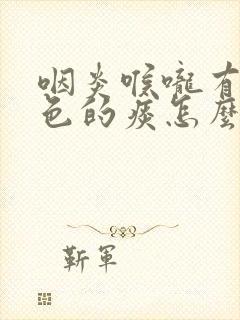 咽炎喉嚨有
色的痰怎麼
靳軍